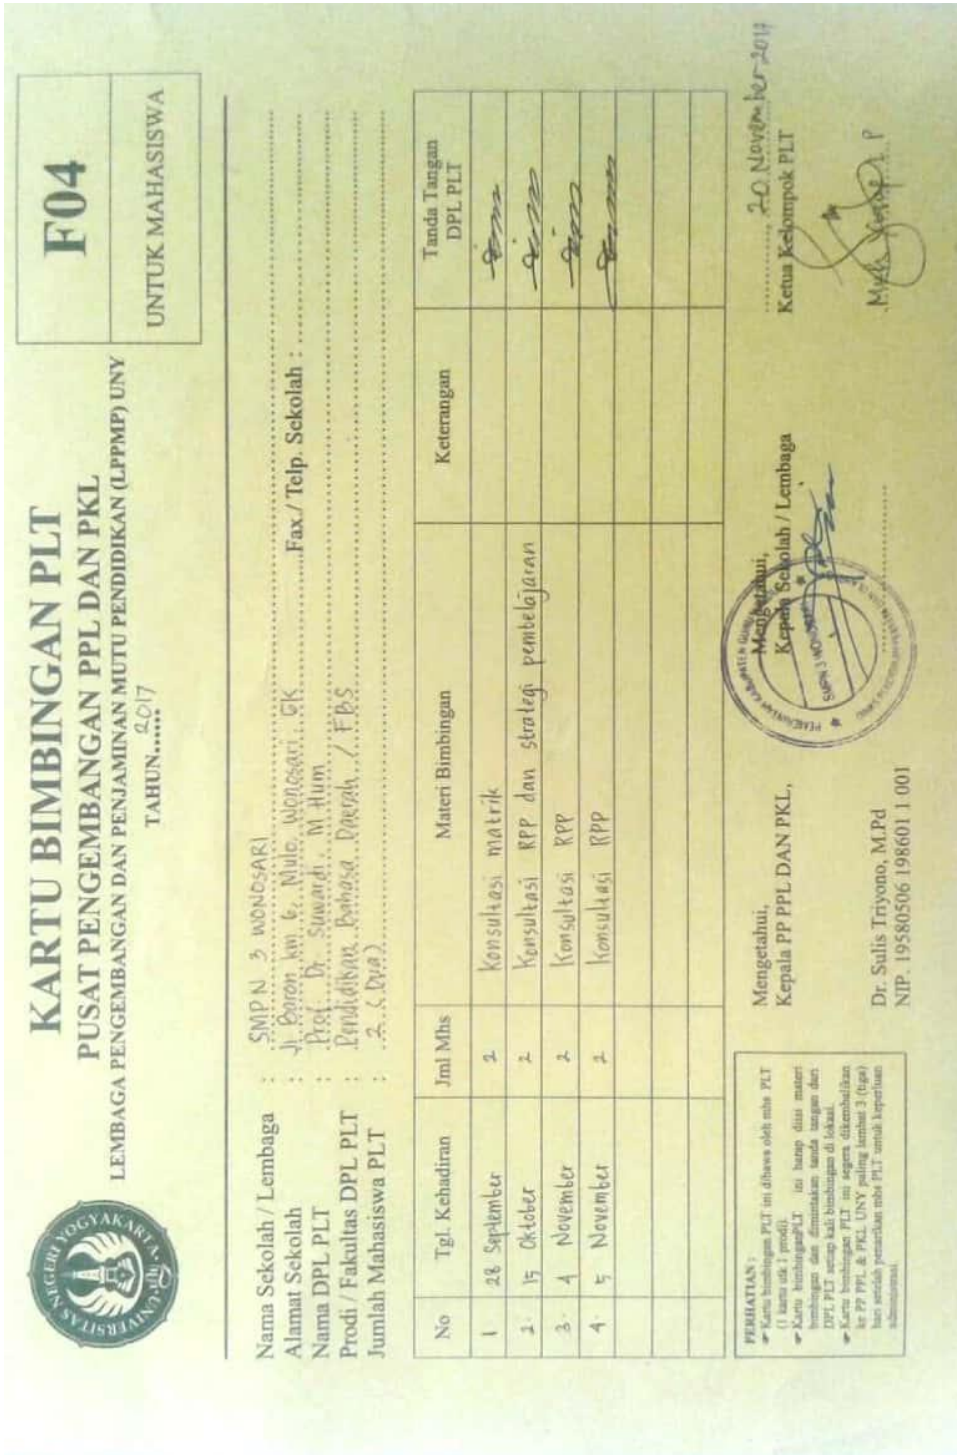 UNIVERSITAS NEGERI YOGYAKARTA
KARTU BIMBINGAN PLT
PUSAT PENGEMBANGAN PPL DAN PKL
LEMBAGA PENGEMBANGAN DAN PENJAMINAN MUTU PENDIDIKAN (LPPMP) UNY
TAHUN...... 2017
F04
UNTUK MAHASISWA
Nama Sekolah / Lembaga : SMP N 3 WONOSARI
Alamat Sekolah : Jl Baron km 6, Mulo, Wonosari, GK Fax./ Telp. Sekolah :
Nama DPL PLT : Prof. Dr. Suwardi, M Hum
Prodi / Fakultas DPL PLT : Pendidikan Bahasa Daerah / FBS
Jumlah Mahasiswa PLT : 2 (Dua)
No Tgl. Kehadiran Jml Mhs Materi Bimbingan Keterangan Tanda Tangan DPL PLT
1 28 September 2 Konsultasi matrik
2. 15 Oktober 2 Konsultasi RPP dan strategi pembelajaran
3. 4 November 2 Konsultasi RPP
4. 5 November 2 Konsultasi RPP
PERHATIAN :
☞ Kartu bimbingan PLT ini dibawa oleh mhs PLT
(1 kartu utk 1 prodi).
☞ Kartu bimbinganPLT ini harap diisi materi
bimbingan dan dimintakan tanda tangan dari
DPL PLT setiap kali bimbingan di lokasi.
☞ Kartu bimbingan PLT ini segera dikembalikan
ke PP PPL & PKL UNY paling lambat 3 (tiga)
hari setelah penarikan mhs PLT untuk keperluan
administrasi.
Mengetahui,
Kepala PP PPL DAN PKL,
Dr. Sulis Triyono, M.Pd
NIP. 19580506 198601 1 001
Mengetahui,
Kepala Sekolah / Lembaga
SMPN 3 WONOSARI
20 November 2017
Ketua Kelompok PLT